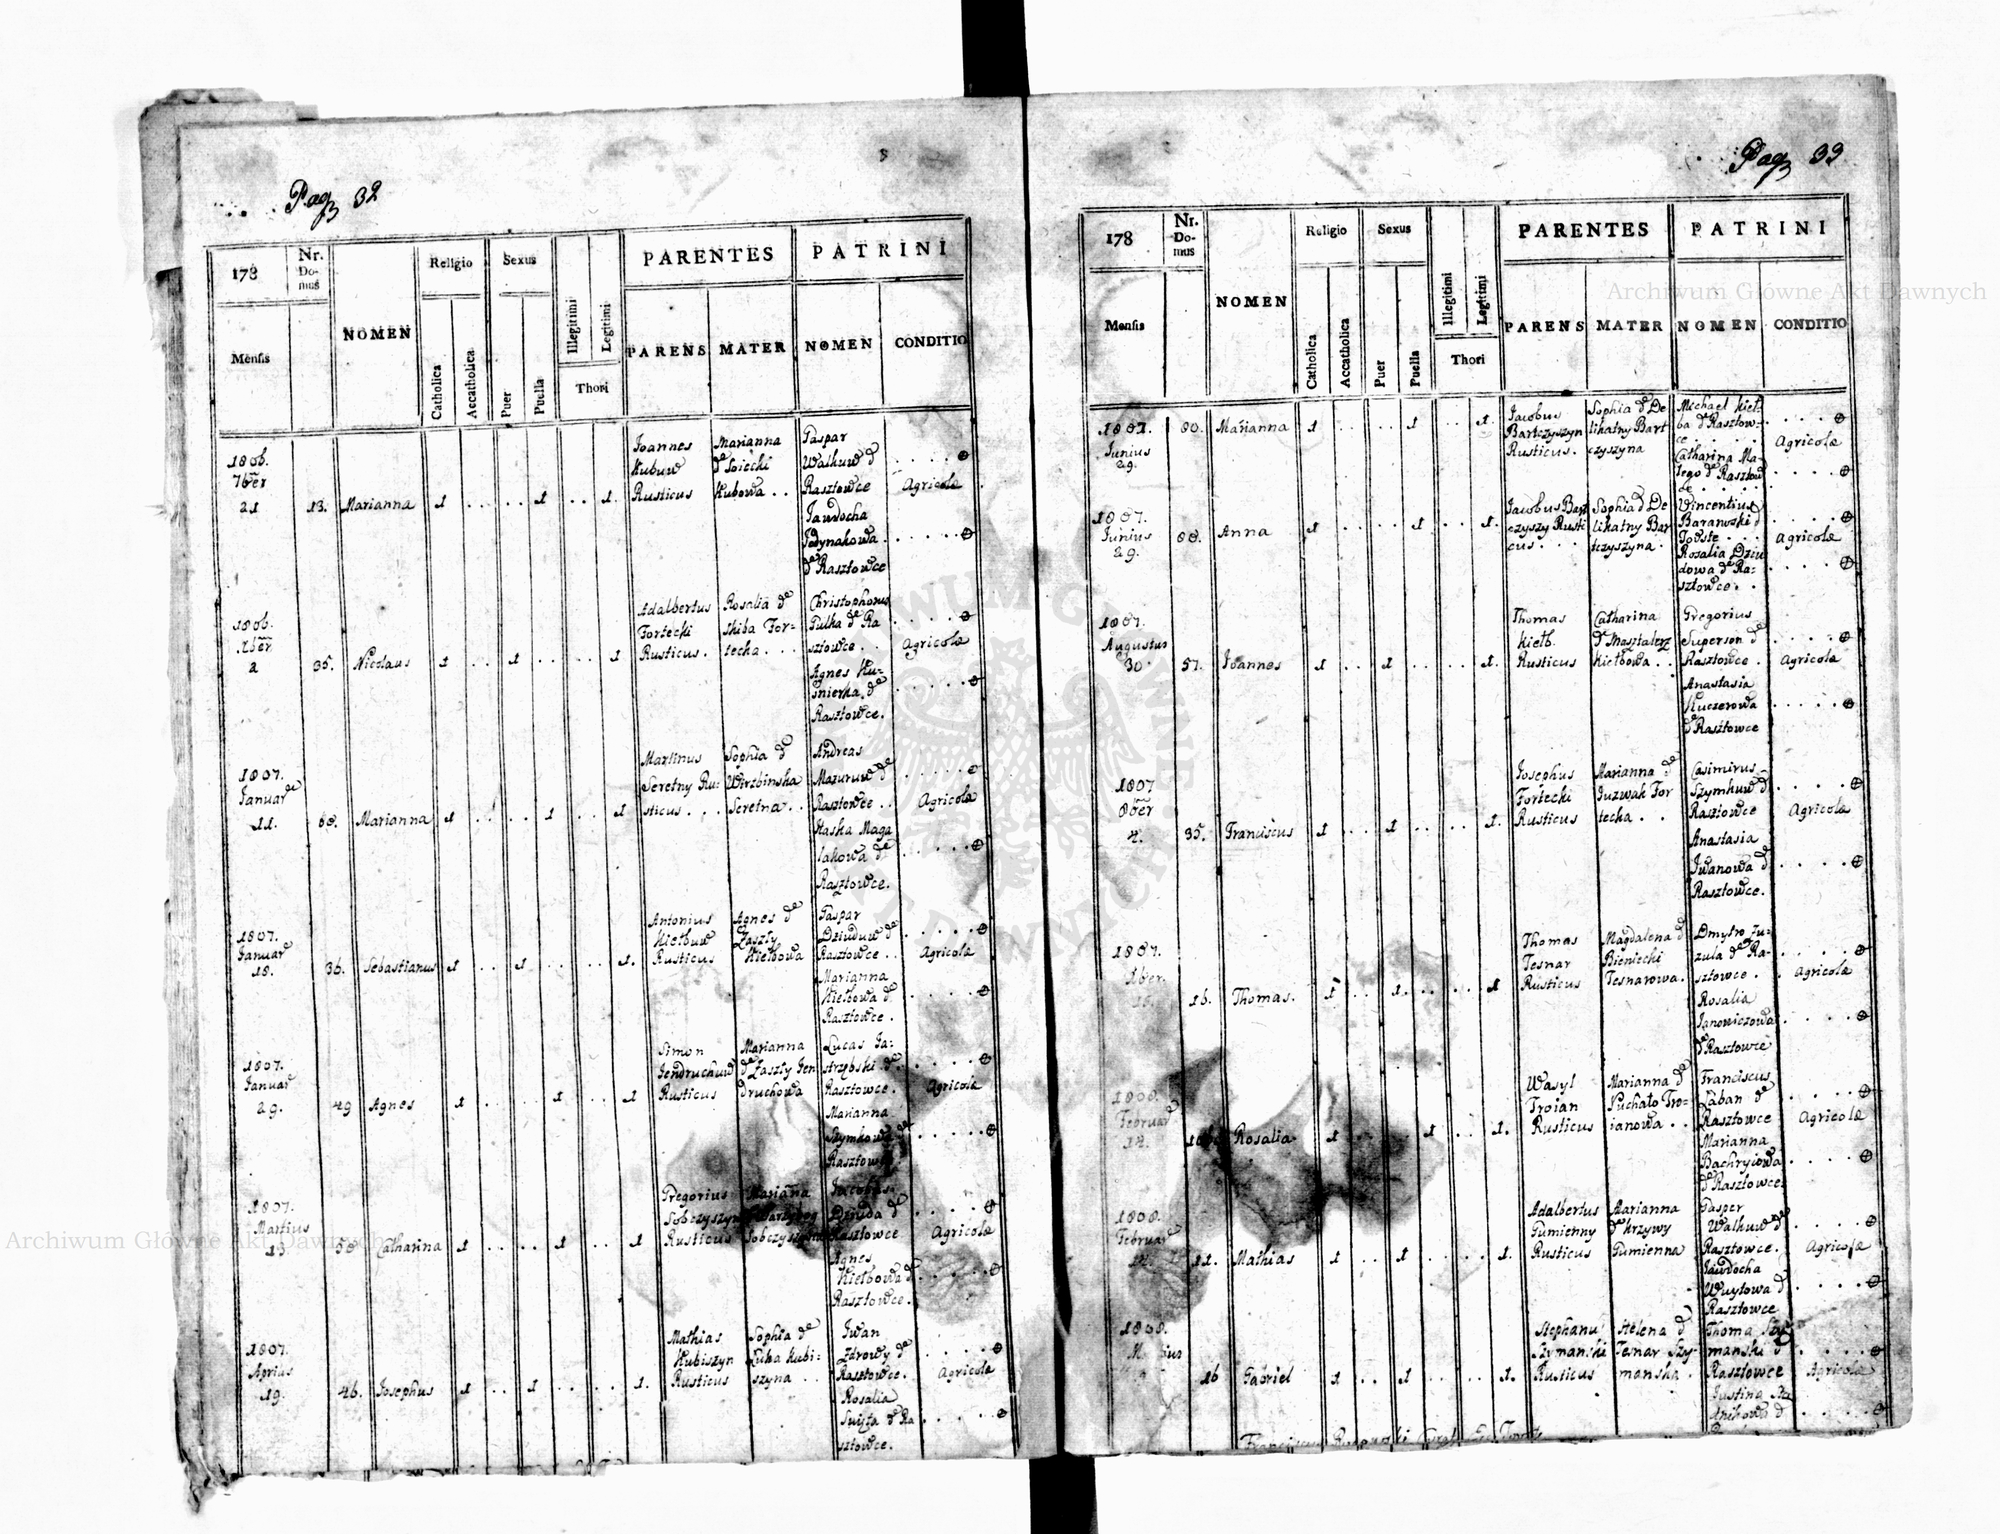 Pag 32
178
Nr.
Do-
mus
NOMEN
Religio
Sexus
Illegitimi
Legitimi
PARENTES
PATRINI
Mensis
Catholica
Accatholica
Puer
Puella
Thori
PARENS
MATER
NOMEN
CONDITIO
1806.
7ber
21
13.
Marianna
1
1
1.
Joannes
Kubuw
Rusticus
Marianna
de Soiecki
Kubowa
Gaspar
Walkuw d
Rasztowce
Jawdocha
Jedynakowa
de Rasztowce
Agricolæ
1806.
2
35.
Nicolaus
1
1
1
Adalbertus
Fortecki
Rusticus.
Rosalia de
Skiba For-
tecka
Christophorus
Gulka de Ra
sztowce
Agnes Ku-
snierka de
Rasztowce.
Agricolæ
1807.
Januar
11.
Marianna
1
1
1
Martinus
Seretny Ru-
sticus
Sophia de
Wirzbinska
Seretna
Andreas
Mazuruw de
Rasztowce
Haska Maga
lakowa de
Rasztowce.
Agricolæ
1807.
Januar
18.
36.
Sebastianus
1
1
1.
Antonius
Kiełbuw
Rusticus
Agnes de
Zaszły
Kiełbowa
Gaspar
Dziuduw de
Rasztowce
Marianna
Kiełbowa de
Rasztowce.
Agricolæ
1807.
Januar
29.
49
Agnes
1
1
1
Simon
Jendruchuw
Rusticus
Marianna
de Zaszły Jen
druchowa
Lucas Ja-
strzębski de
Rasztowce.
Marianna
Szymkowa de
Rasztowce
Agricolæ
1807.
Martius
13
58
Catharina
1
1
1
Gregorius
Sobczyszyn
Rusticus
Marianna
Jacobus
Dziuba d
Rasztowce
Agnes
Kiełbowa d
Rasztowce.
Agricolæ
1807.
Aprius
19.
46.
Josephus
1
1
1.
Mathias
Kubiszyn
Rusticus
Sophia de
Luka Kubi-
szyna
Iwan
Zdrowy de
Rasztowce.
Rosalia
Swięta de Ra
sztowce.
Agricolæ
Pag 33
178
Nr.
Do-
mus
NOMEN
Religio
Sexus
Illegitimi
Legitimi
PARENTES
PATRINI
Mensis
Catholica
Accatholica
Puer
Puella
Thori
PARENS
MATER
NOMEN
CONDITIO
1807.
Junius
29.
Marianna
1
1
1.
Jacobus
Bartczyszyn
Rusticus.
Sophia de De
likatny Bart
czyszyna
Michael Kieł-
ba de Rasztow-
ce
Catharina Ma-
de Rasztow
ce
Agricolæ
1807.
Junius
29.
88.
Anna
1
1
1.
Jacobus Bart
czyszy Rusti
cus.
Sophia d De
likatny Bar
tczyszyna.
Vincentius
Baranoski d
Rosalia Dziu
dowa de Ra-
sztowce.
Agricolæ
1807.
Augustus
30
57.
Joannes
1
1
1.
Thomas
Kiełb.
Rusticus
Catharina
d Masztalerz
Kiełbowa
Gregorius
Superson de
Rasztowce.
Anastasia
Kuczerowa
de Rasztowce
Agricolæ
1807
8ber
4.
35.
Franciscus
1
1
1.
Josephus
Fortecki
Rusticus
Marianna de
Juzwak For
tecka
Casimirus
Szymkuw d
Rasztowce
Anastasia
Iwanowa d
Rasztowce.
Agricolæ
1807.
16.
Thomas.
1
1.
1
Thomas
Tesnar
Rusticus
Magdalena d
Bieniecki
Tesnarowa.
Dmytro Zu-
zula de Ra-
sztowce
Rosalia
Janowiczowa
de Rasztowce
Agricolæ
1808.
Februar
14.
Rosalia
1
1
1.
Wasyl
Troian
Rusticus
Marianna de
Puchało Tro-
ianowa
Franciscus
Łaban de
Rasztowce
Marianna
Bachryiowa
de Rasztowce
Agricolæ
1808.
Februar
11.
Mathias
1
1
1.
Adalbertus
Gumienny
Rusticus
Marianna
de Krzywy
Gumienna
Gasper
Walkuw de
Rasztowce.
Jawdocha
Wuytowa d
Rasztowce
Agricolæ
1808.
16
Gabriel
1
1
1.
Stephanu
Szymanski
Rusticus
Helena d
Tesnar Szy-
manska
Thoma Szy
manski d
Rasztowce
Justina
d
Agricolæ
Archiwum Główne Akt Dawnych
Archiwum Główne Akt Dawnych